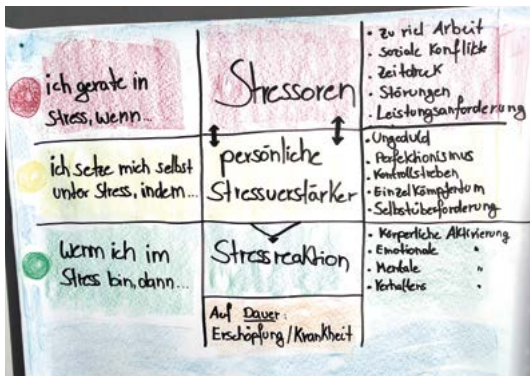 ich gerate in
Stress, wenn...
Stressoren
• Zu viel Arbeit
• Soziale Konflikte
• Zeitdruck
• Störungen
• Leistungsanforderung
ich setze mich selbst
unter Stress, indem...
persönliche
Stressverstärker
• Ungeduld
• Perfektionismus
• Kontrollstreben
• Einzelkämpfertum
• Selbstüberforderung
Wenn ich im
Stress bin, dann...
Stressreaktion
• Körperliche Aktivierung
• Emotionale "
• Mentale "
• Verhaltens "
Auf Dauer:
Erschöpfung/Krankheit